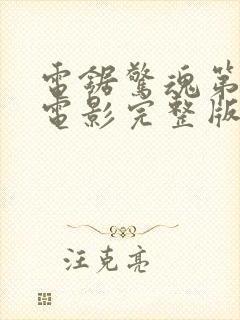 電鋸驚魂第
電影完整版
汪克亮